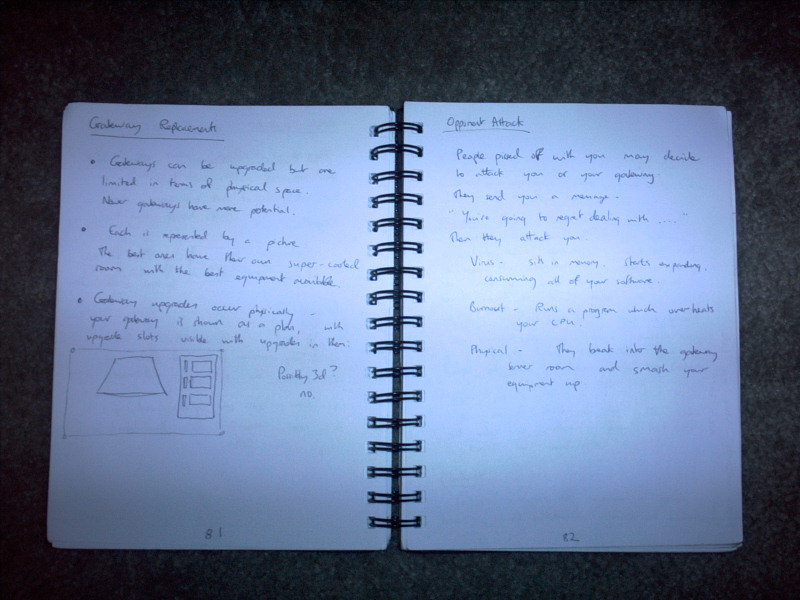 Gateway Replacements
• Gateways can be upgraded but are
limited in terms of physical space.
Newer gateways have more potential.
• Each is represented by a picture
The best ones have their own super-cooled
room with the best equipment available.
• Gateway upgrades occur physically -
your gateway is shown as a plan, with
upgrade slots visible with upgrades in them.
Possibly 3d?
no.
81
Opponent Attack
People pissed off with you may decide
to attack you or your gateway.
They send you a message -
"You're going to regret dealing with ....."
Then they attack you.
Virus - sits in memory. Starts expanding,
consuming all of your software.
Burnout - Runs a program which overheats
your CPU.
Physical - They break into the gateway
room and smash your
equipment up
82